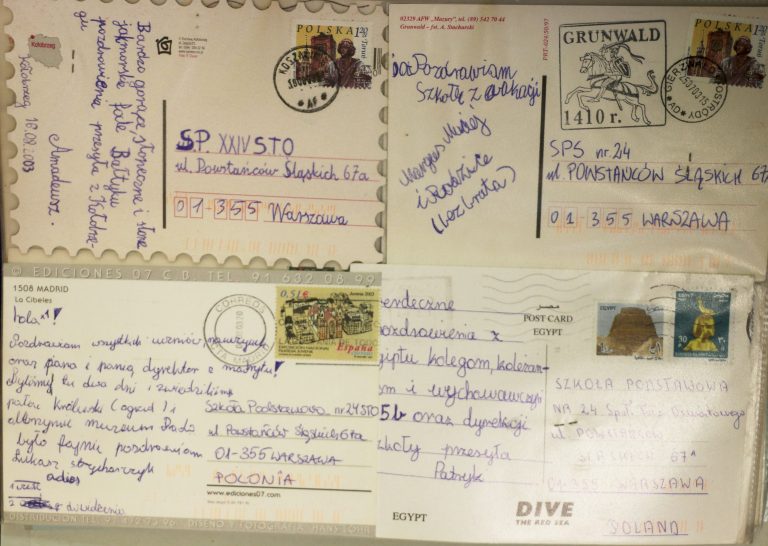 Kołobrzeg
POLSKA
1,20
Bardzo gorące, słoneczne i słone
jak morskie fale Bałtyku
pozdrowienia przesyła z Kołobrze-
gu
Amadeusz.
Kołobrzeg 18.08.2003
SP. XXIV STO
ul. Powstańców Śląskich 67a
01-355 Warszawa
02329 AFW "Mazury" tel. (89) 542 70 44
Grunwald - fot. A. Stachurski
POLSKA
1,20
GRUNWALD
1410 r.
Pozdrawiam
Szkołę z wakacji
i Rodzice
(bez brata)
SPS nr 24
ul. POWSTAŃCÓW ŚLĄSKICH 67a
01-355 WARSZAWA
© EDICIONES 07 C.B. TEL. 91 632 08 99
1508 MADRID
La Cibeles
hola!
Pozdrawiam wszystkich uczniów nauczycieli
oraz pana i panią dyrektor z Madrytu!
Byliśmy tu dwa dni i zwiedziliśmy
pałac Królewski (ogród) i
olbrzymie muzeum Prado
było fajnie pozdrawiam
Łukasz
adios
CORREOS
0,51€
España
Szkoła Podstawowa nr 24 STO
ul. Powstańców Śląskich 67a
01-355 WARSZAWA
POLONIA
www.ediciones07.com
erdeczne
ozdrowienia z
giptu kolegom, koleżan-
om i wychowawczyni
5b oraz dyrekcji
zkoły przesyła
Patryk
مصر
POST CARD
EGYPT
SZKOŁA PODSTAWOWA
NR 24
ul. POWSTAŃCÓW
ŚLĄSKICH 67A
01-355 WARSZAWA
POLAND
EGYPT
DIVE
THE RED SEA